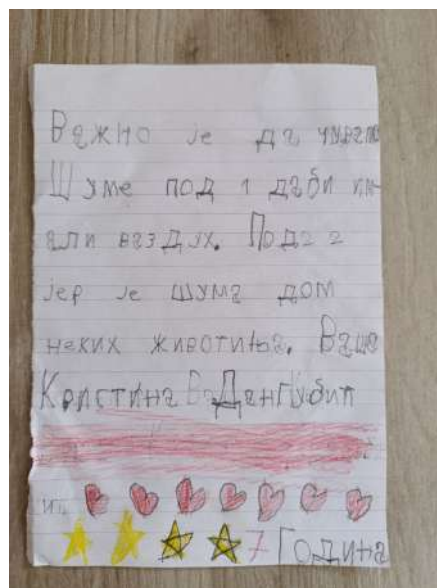 Важно је да чувамо
Шуме под 1 даби им-
али ваздух. Под 2 2
јер је шума дом
неких животиња. Ваша
Кристина
7 Година